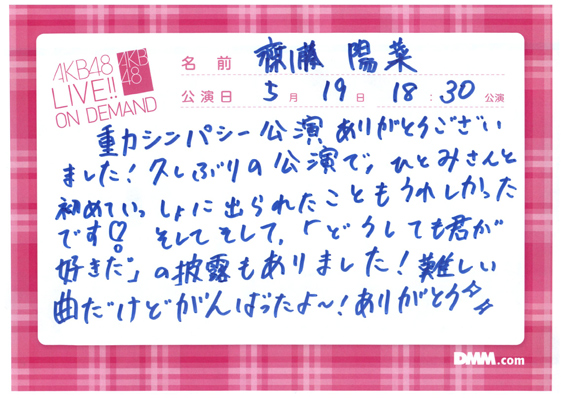 AKB48
LIVE!!
ON DEMAND
AKB
48
名前 齋藤 陽菜
公演日 5月 19日 18:30 公演
重力シンパシー公演ありがとうござい
ました！久しぶりの公演で、ひとみさんと
初めていっしょに出られたこともうれしかった
です♡ そしてそして、「どうしても君が
好きだ」の披露もありました！難しい
曲だけどがんばったよ〜！ありがとう
DMM.com